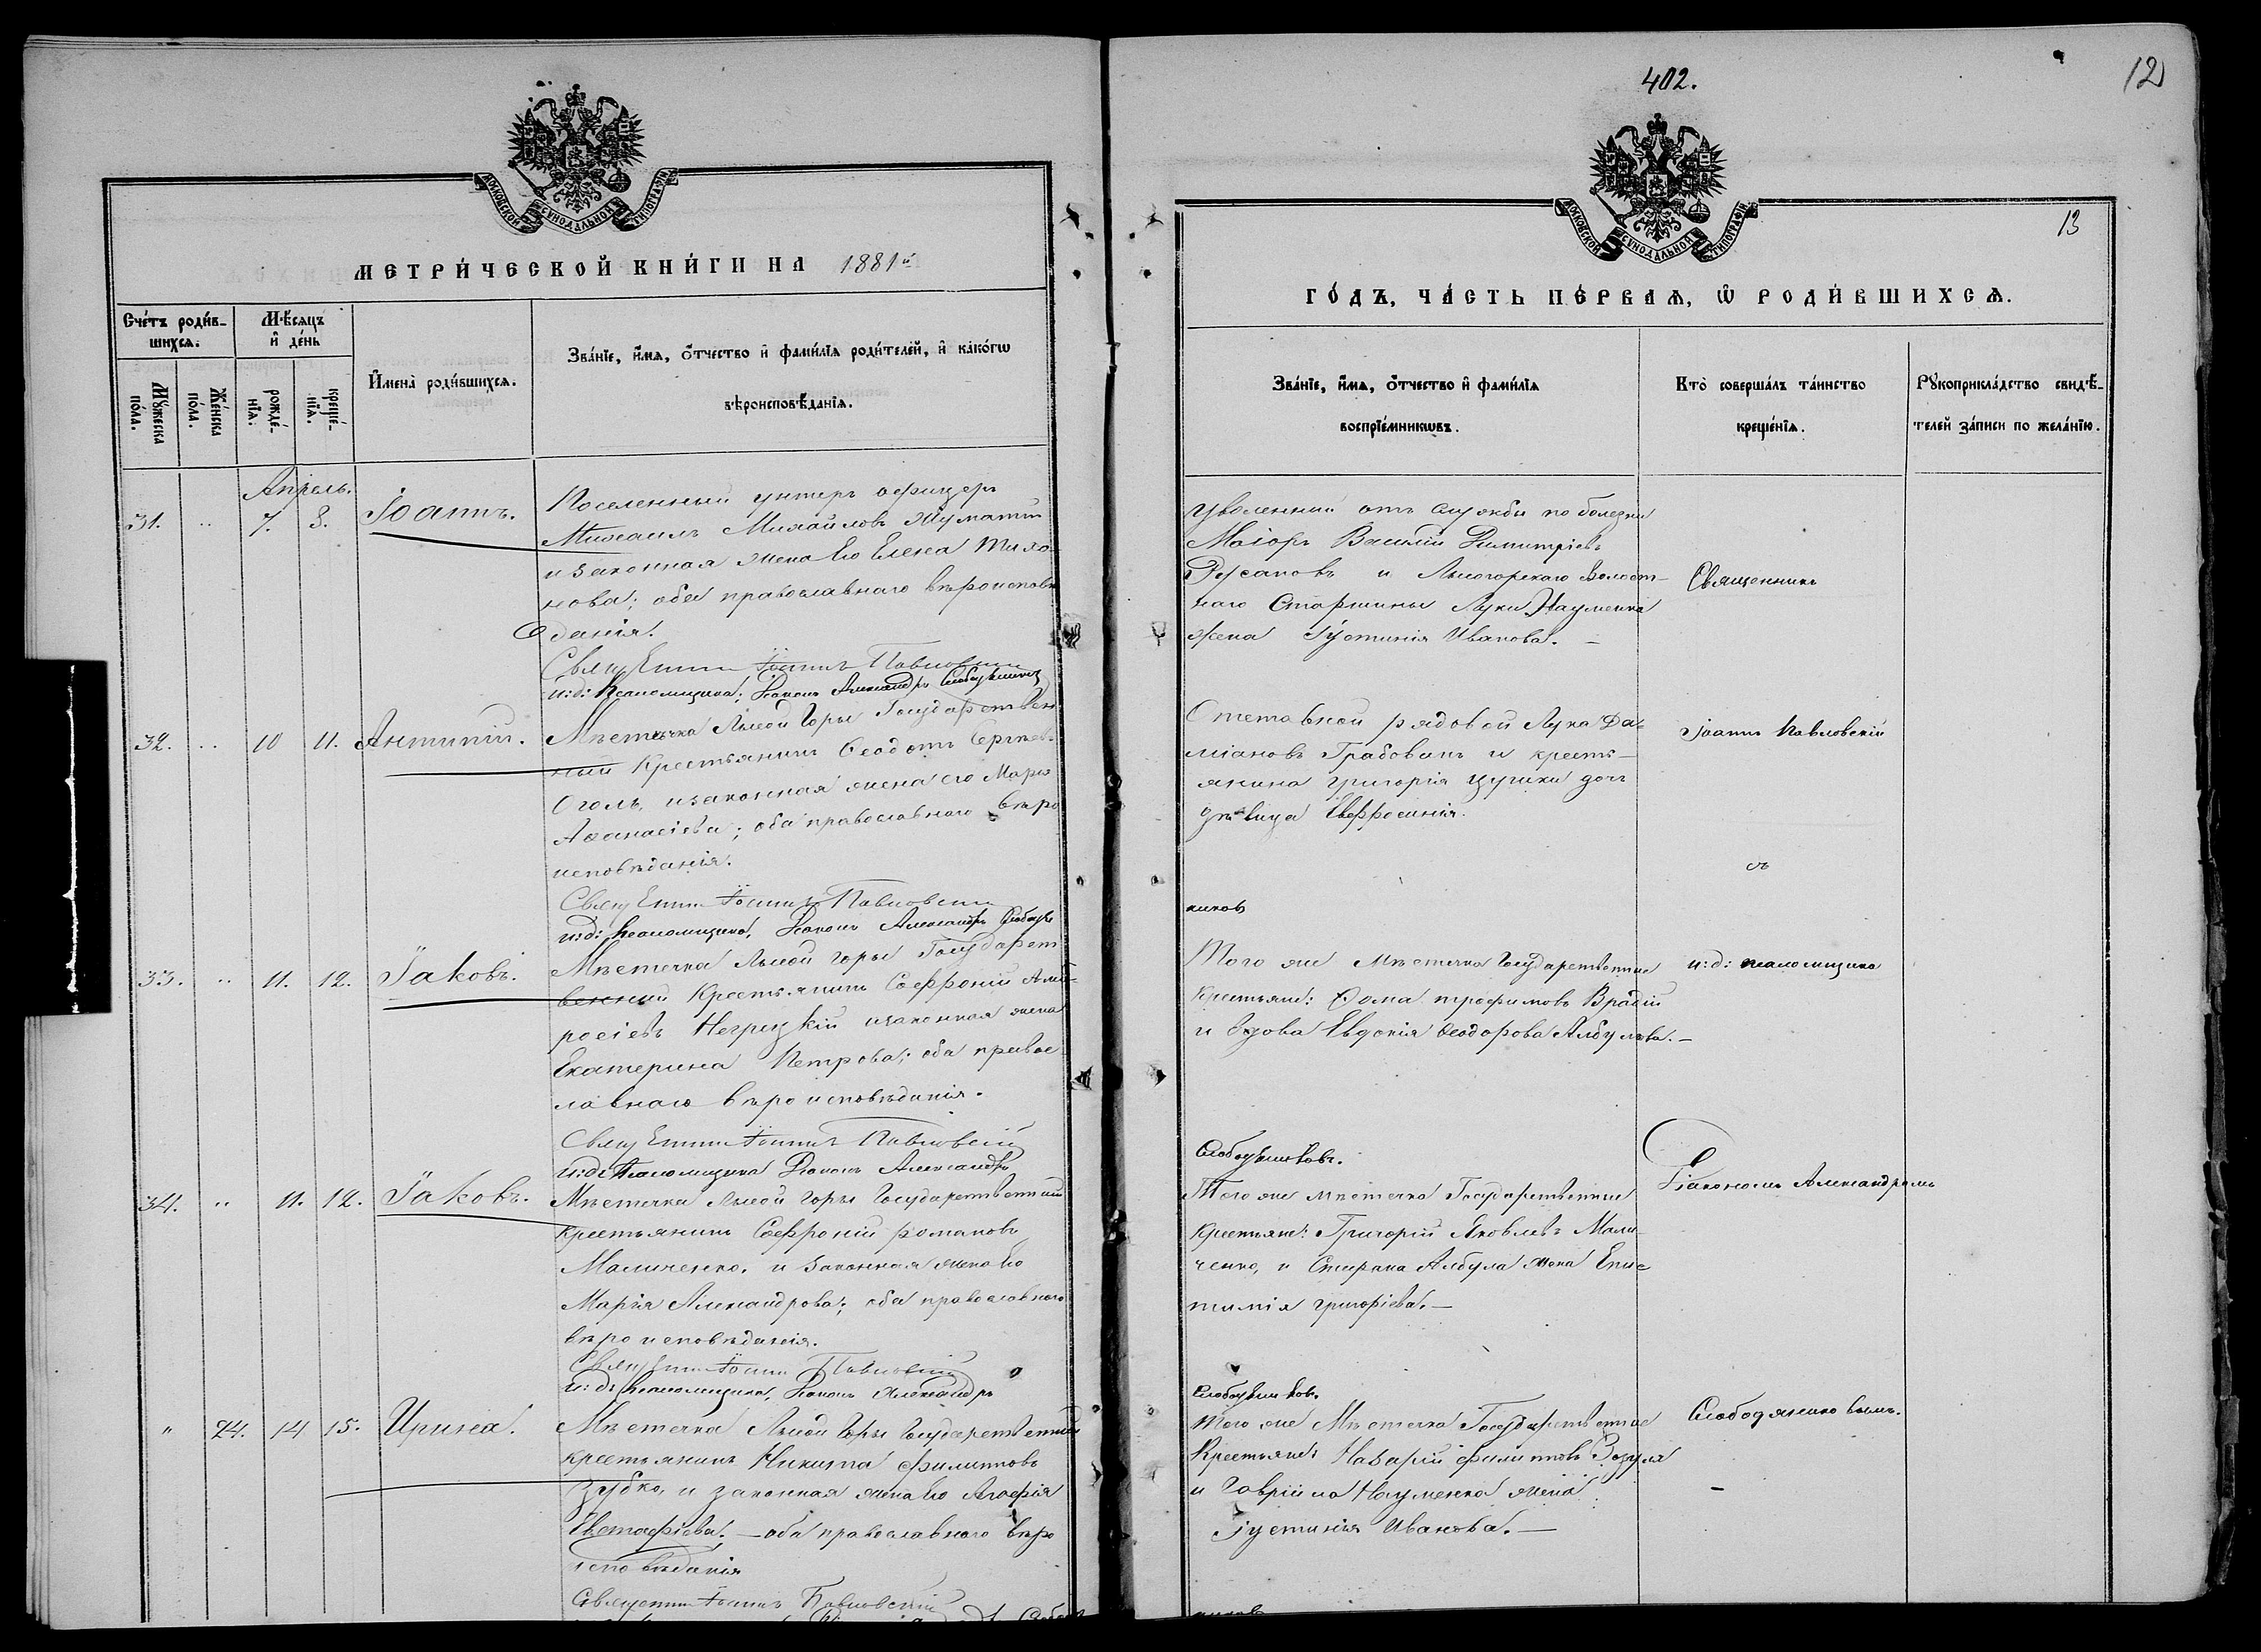 402.
12
13
МОСКОВСКОЙ СѴНОДАЛЬНОЙ ТИПОГРАФІИ
МОСКОВСКОЙ СѴНОДАЛЬНОЙ ТИПОГРАФІИ
МЕТРИ́ЧЕСКОЙ КНИ́ГИ НА 1881й
ГО́ДЪ, ЧА́СТЬ ПЕ́РВАѦ, Ѡ҆ РОДИ́ВШИХСѦ.
Сче́тъ роди́в-
шихсѧ.
Мꙋ́жеска
по́ла.
Же́нска
по́ла.
Мѣ́сѧцъ
и҆ де́нь
рожде́-
нїѧ.
креще́-
нїѧ.
И҆мена̀ роди́вшихсѧ.
Зва́нїе, и҆́мѧ, ѻ҆́тчество и҆ фами́лїѧ роди́телей, и҆ како́гѡ
вѣроисповѣ́данїѧ.
Зва́нїе, и҆́мѧ, ѻ҆́тчество и҆ фами́лїѧ
воспрїе́мникѡвъ.
Кто̀ соверша́лъ та́инство
креще́нїѧ.
Рꙋкоприкла́дство свидѣ́-
телей за́писи по жела́нїю.
Апрѣль.
31. „ 7. 8. Іоаннъ.
Поселенный унтеръ офицеръ
Михаилъ Михайловъ
и законная жена Его Елена Тихо-
нова; оба православнаго вѣроисповѣ-
данія.
Священникъ Іоаннъ Павловскій
и: д: Псаломщика, Діаконъ Александръ
Уволенный отъ службы по болезни
Маіоръ Василій Димитріевъ
Русановъ и Лысогорскаго Волост-
наго Старшины Луки Науменка
жена Іустинія Иванова. —
Священникъ
32. „ 10 11. Антипій.
Мѣстечка Лысой Горы Государствен
ный Крестьянинъ Ѳеодотъ Сергѣевъ
Оголь, и законная жена его Марія
Аѳанасіева; оба православнаго вѣро
исповѣданія.
Священникъ Іоаннъ Павловскій
и: д: Псаломщика, Діаконъ Александръ
Отставной рядовой Лука Да-
міановъ Грабованъ и кресть-
янина Григорія Цурики дочь
дѣвица Евфросинія.
Іоаннъ Павловскій
съ
никовъ
33. „ 11. 12. Іаковъ.
Мѣстечка Лысой горы Государст
венный Крестьянинъ Софроній Амв-
росіевъ Негрецкій и законная жена
Екатерина Петрова; оба правос
лавнаго вѣроисповѣданія.
Священникъ Іоаннъ Павловскій
и: д: Псаломщика Діаконъ Александръ
Того же Мѣстечка Государственные
крестьяне: Ѳома Трофимовъ Врадій
и вдова Евдокія Ѳеодорова Албулова. —
и: д: псаломщика
Слободяниковъ.
34. „ 11. 12. Іаковъ.
Мѣстечка Лысой горы Государственный
крестьянинъ Софроній Романовъ
Маличенко, и Законная жена Его
Марія Александрова; оба православнаго
вѣроисповѣданія.
Священникъ Іоаннъ Павловскій
и: д: Псаломщика, Діаконъ Александръ
Того же мѣстечка Государственные
крестьяне: Григорій Яковлевъ Мали-
ченко, и Спирана Албула жена Епис-
тимія Григоріева. —
Діакономъ Александромъ
Слободяниковъ.
„ 24. 14 15. Ирина.
Мѣстечка Лысой Горы Государственный
крестьянинъ Никита Филипповъ
Зубко, и законная жена Его Агафія
Евстафіева. — оба православнаго вѣро
исповѣданія
Священникъ Іоаннъ Павловскій
Того же Мѣстечка Государственные
Крестьяне Назарій Филипповъ Зозуля
и Гавріила Науменка жена
Іустинія Иванова. —
Слободяниковымъ.
никовъ